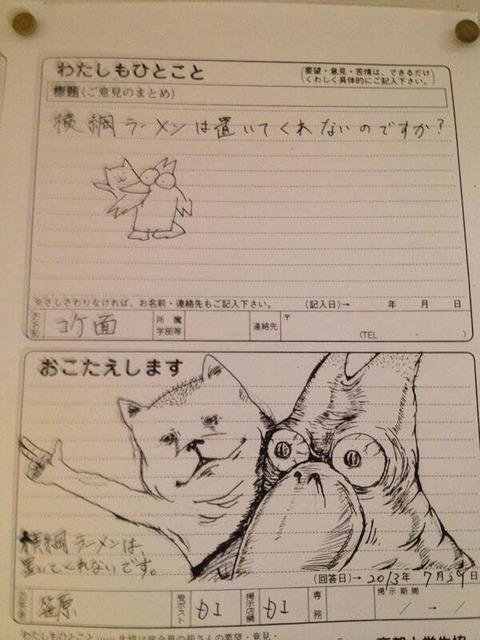 わたしもひとこと
要望・意見・苦情は、できるだけ
くわしく具体的にご記入下さい。
標題(ご意見のまとめ)
横綱ラーメンは置いてくれないのですか?
※さしさわりなければ、お名前・連絡先もご記入下さい。
(記入日)→ 年 月 日
お名前
コケ面
所属
学部等
連絡先
〒
(TEL - )
おこたえします
横綱ラーメンは、
置いてくれないです。
(回答日)→ 2013年 7月29日
笹原
受ポスト
掲示店舗
専務
掲示期間
/ ~ /